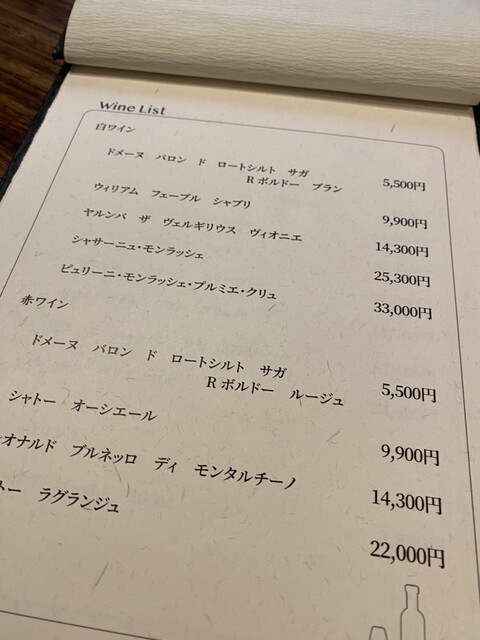 Wine List
白ワイン
ドメーヌ バロン ド ロートシルト サガ
R ボルドー ブラン 5,500円
ウィリアム フェーブル シャブリ 9,900円
ヤルンバ ザ ヴェルギリウス ヴィオニエ 14,300円
シャサーニュ・モンラッシェ 25,300円
ピュリーニ・モンラッシェ・プルミエ・クリュ 33,000円
赤ワイン
ドメーヌ バロン ド ロートシルト サガ
R ボルドー ルージュ 5,500円
シャトー オーシエール 9,900円
オナルド ブルネッロ ディ モンタルチーノ 14,300円
トー ラグランジュ 22,000円